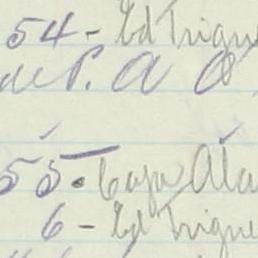 54 - Ed Trigue
de P. A O
55. Caja Ala
6 - Ed Trigue